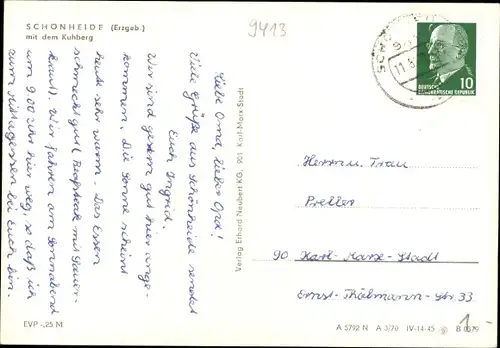 SCHÖNHEIDE (Erzgeb.)
mit dem Kuhberg
9413
DEUTSCHE
DEMOKRATISCHE REPUBLIK
10
Liebe Oma, lieber Opa!
Viele Grüße aus Schönheide sendet
Euch Ingrid.
Wir sind gestern gut hier ange-
kommen. Die Sonne scheint
heute sehr warm. Das Essen
schmeckt gut (Beefsteak mit Sauer-
kraut). Wir fahren am Sonnabend
um 9.00 Uhr hier weg, so daß ich
zum Mittagessen bei Euch bin.
Verlag Erhard Neubert KG, 901 Karl-Marx-Stadt
Herrn u. Frau
Preller
90 Karl-Marx-Stadt
Ernst-Thälmann-Str. 33
EVP -,25 M
A 5792 N A 3/70 IV-14-45 B 0379
1.-